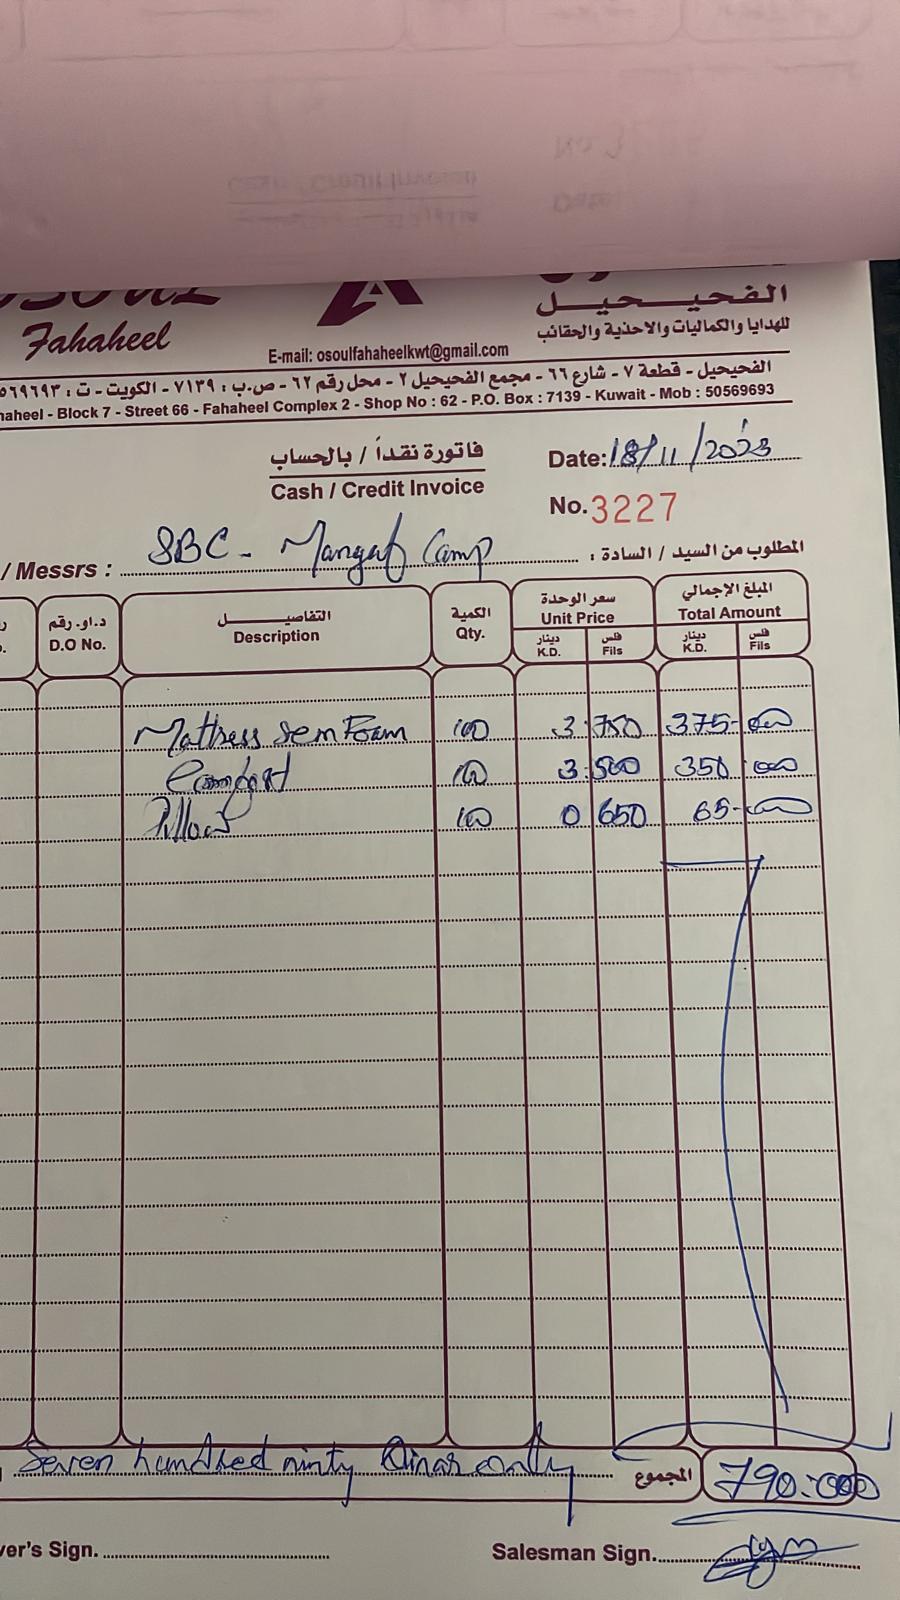 OSOUL
Fahaheel
الفحيحيل
للهدايا والكماليات والاحذية والحقائب
E-mail: osoulfahaheelkwt@gmail.com
الفحيحيل - قطعة ٧ - شارع ٦٦ - مجمع الفحيحيل ٢ - محل رقم ٦٢ - ص.ب : ٧١٣٩ - الكويت - ت : ٥٦٩٦٩٣
haheel - Block 7 - Street 66 - Fahaheel Complex 2 - Shop No : 62 - P.O. Box : 7139 - Kuwait - Mob : 50569693
فاتورة نقداً / بالحساب
Cash / Credit Invoice
Date: 18/11/2023
No. 3227
/ Messrs : SBC - Mangaf Camp المطلوب من السيد / السادة :
د.او. رقم التفاصيل الكمية سعر الوحدة المبلغ الإجمالي
D.O No. Description Qty. Unit Price Total Amount
دينار فلس دينار فلس
K.D. Fils K.D. Fils
Mattress Sem Foam 100 3 750 375 - 000
Comfort 100 3 500 350 000
Pillow 100 0 650 65 - 000
Seven hundred ninty Dinar only المجموع 790.000
ver's Sign. Salesman Sign.